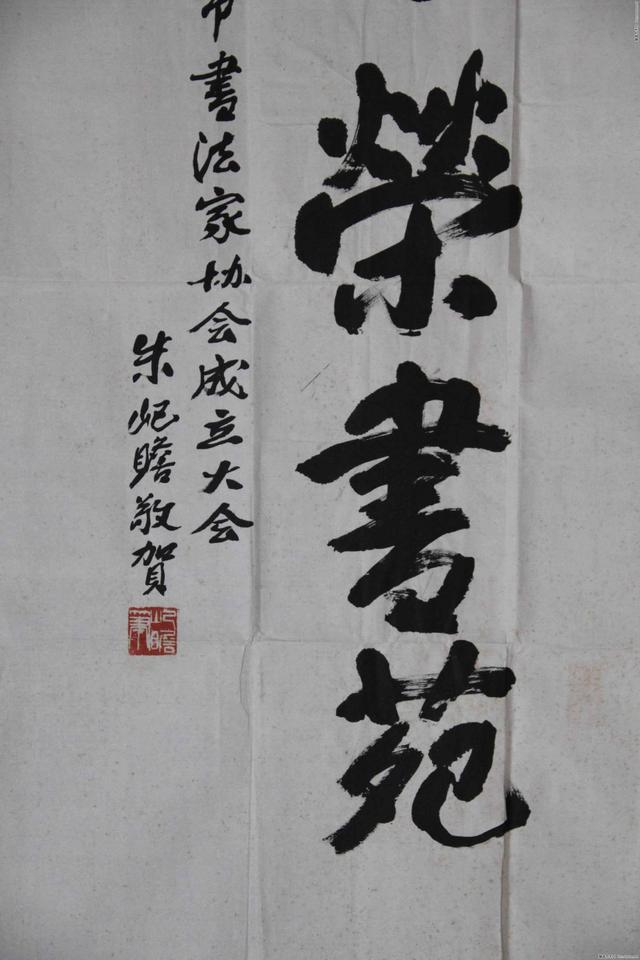 榮書苑
市書法家协会成立大会
朱屺瞻敬賀
屺瞻